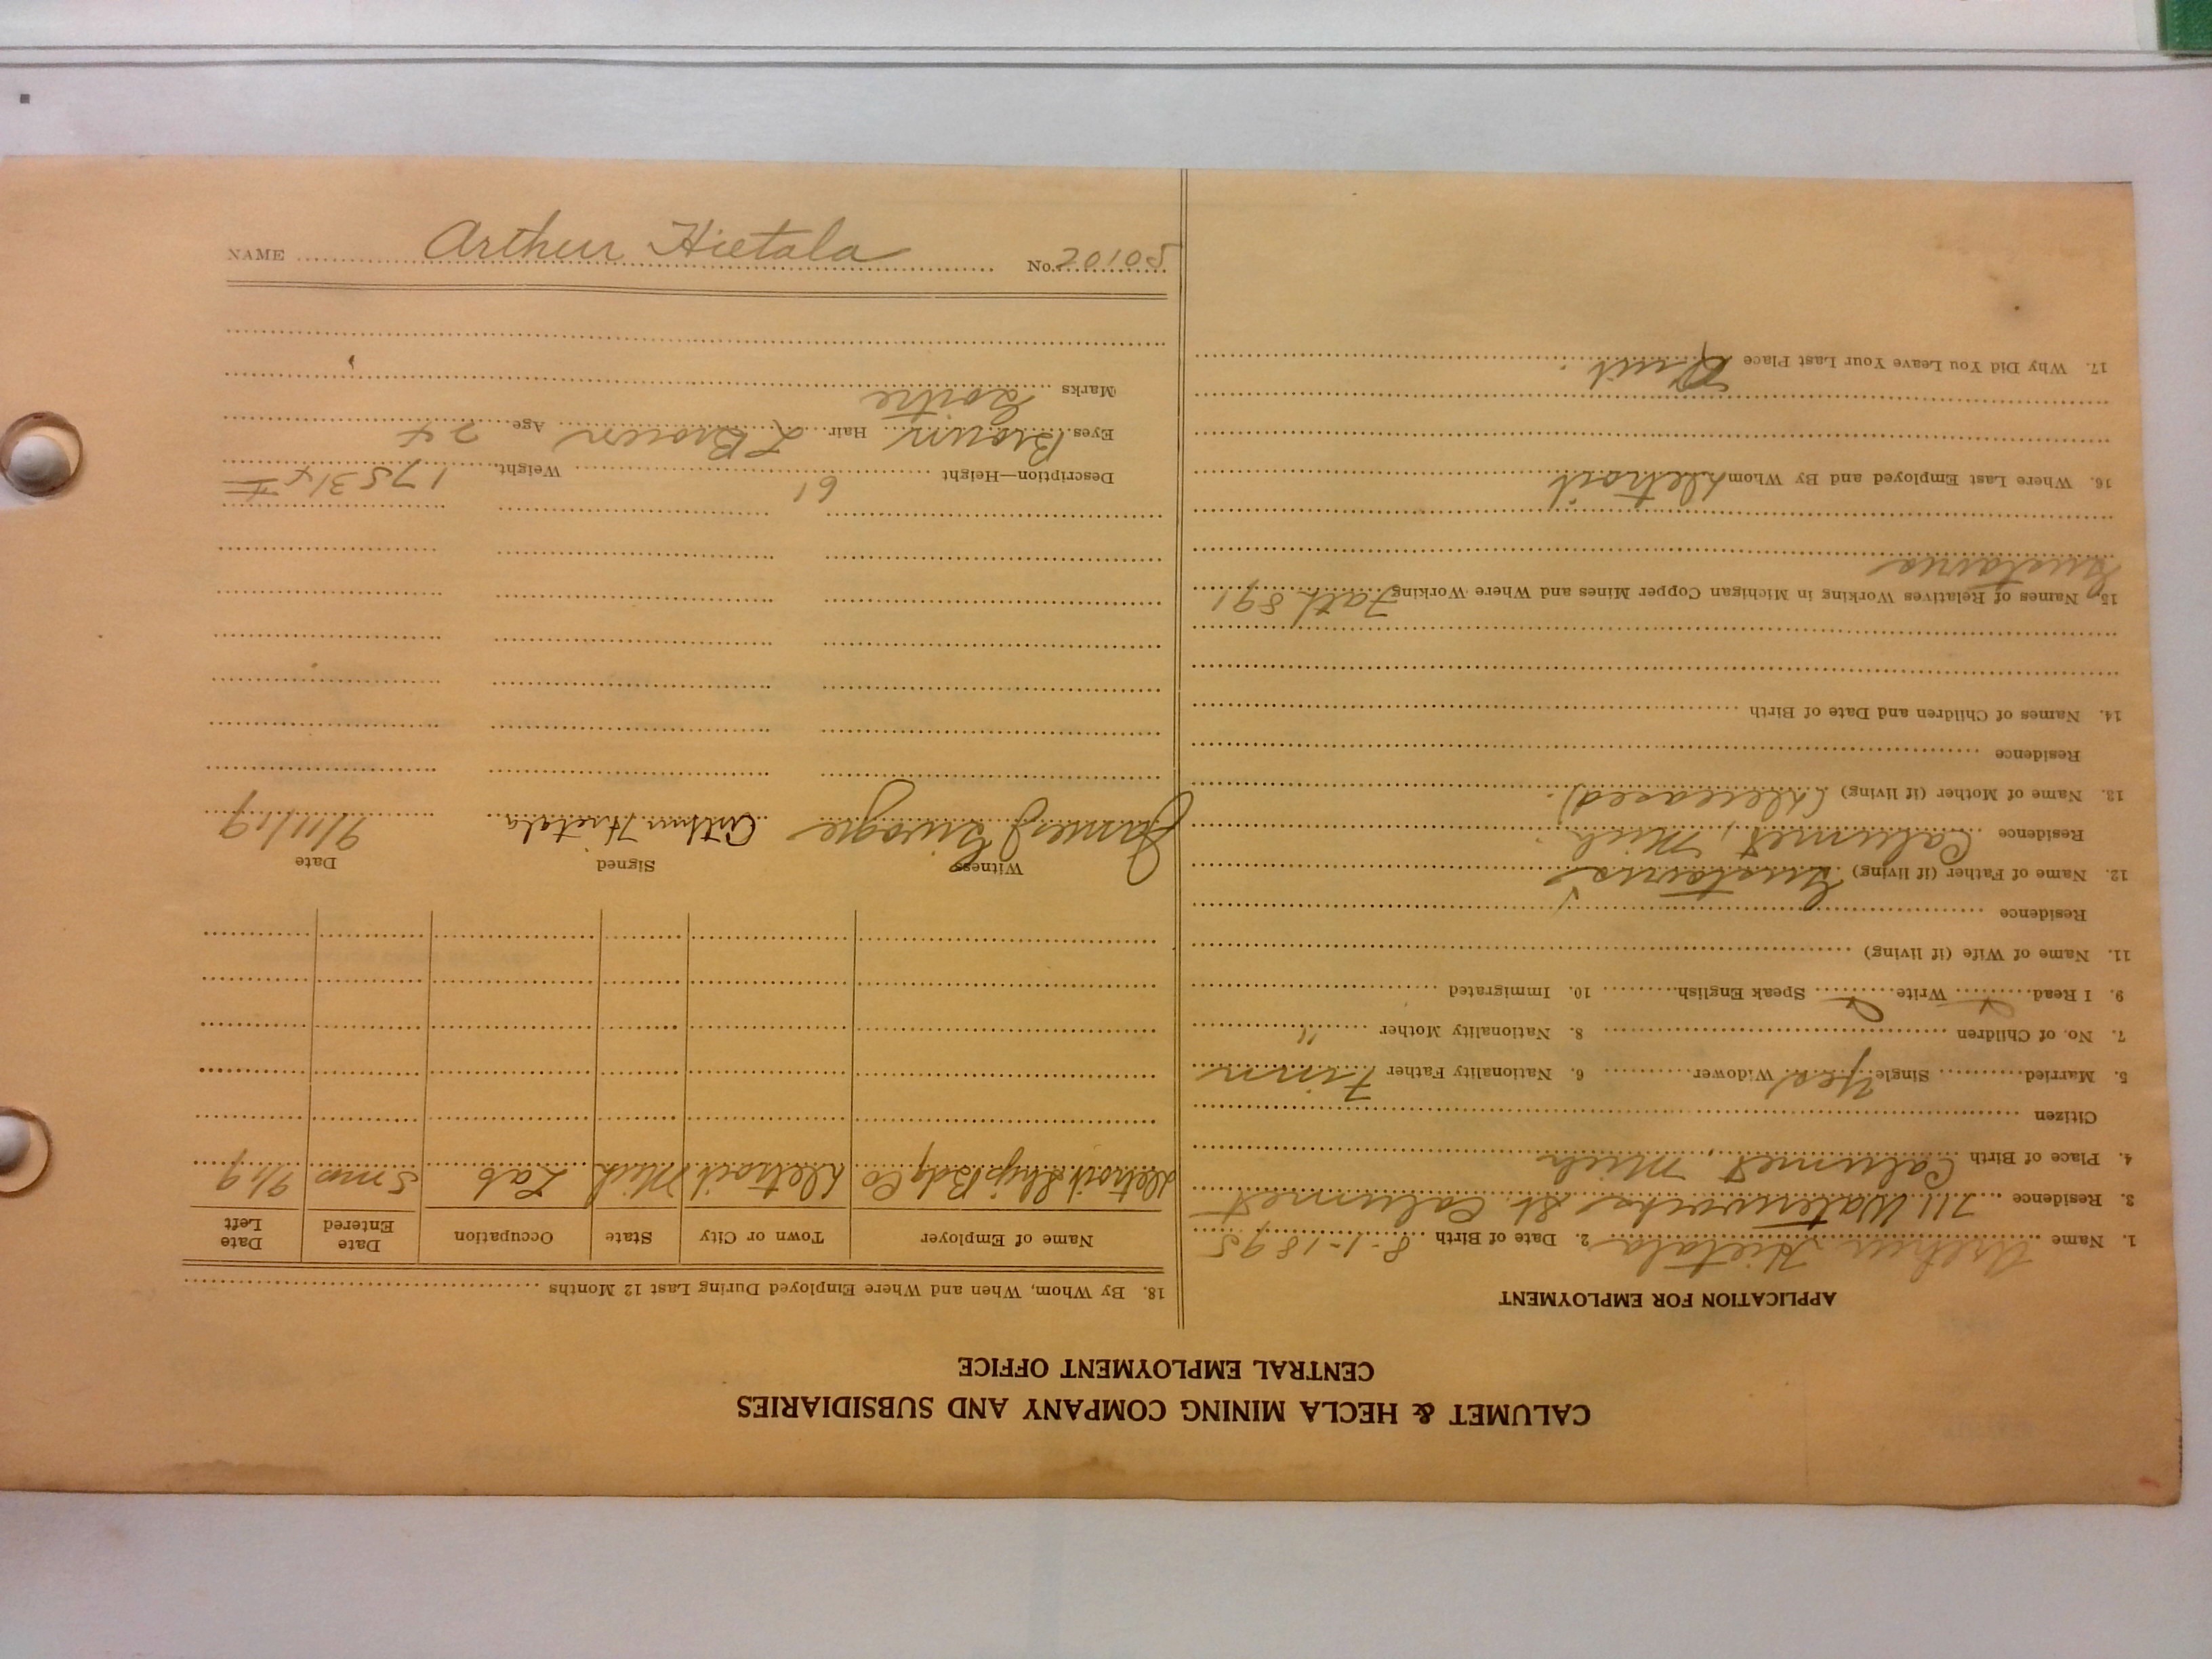 CALUMET & HECLA MINING COMPANY AND SUBSIDIARIES
CENTRAL EMPLOYMENT OFFICE
APPLICATION FOR EMPLOYMENT
1. Name Arthur Hietala 2. Date of Birth 8-1-1895
3. Residence 711 Waterworks St. Calumet
4. Place of Birth Calumet, Mich
Citizen
5. Married Single Yes Widower 6. Nationality Father Finn
7. No. of Children 8. Nationality Mother "
9. I Read ✓ Write ✓ Speak English 10. Immigrated
11. Name of Wife (if living)
Residence
12. Name of Father (if living) Gustava
Residence Calumet, Mich.
13. Name of Mother (if living) (Deceased)
Residence
14. Names of Children and Date of Birth
15. Names of Relatives Working in Michigan Copper Mines and Where Working Fath 891
Gustava
16. Where Last Employed and By Whom Detroit
17. Why Did You Leave Your Last Place Quit.
18. By Whom, When and Where Employed During Last 12 Months
Name of Employer Town or City State Occupation Date Entered Date Left
Detroit Bdg Co Detroit Mich Lab 5 mo 9/19
Witness Signed Date
James Arthur Hietala 9/11/19
Description—Height 6' Weight 175 3/4
Eyes Brown Hair L Brown Age 24
Marks Goitre
NAME Arthur Hietala No. 20105